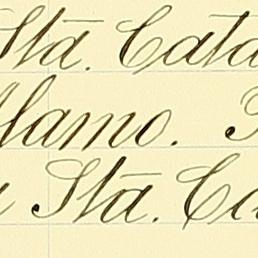 Stā. Cata
Alamo.
Stā. Ca